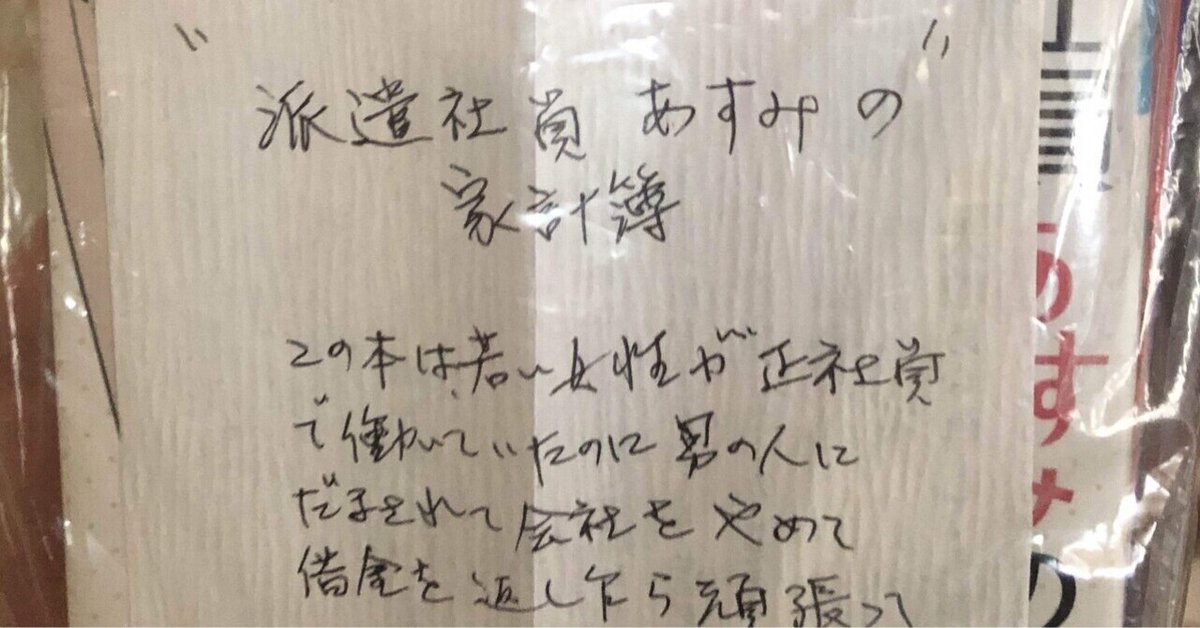 "派遣社員 あすみの"
家計簿
この本は若い女性が正社員
で働いていたのに男の人に
だまされて会社をやめて
借金を返し乍ら頑張って
員
あすみ
の